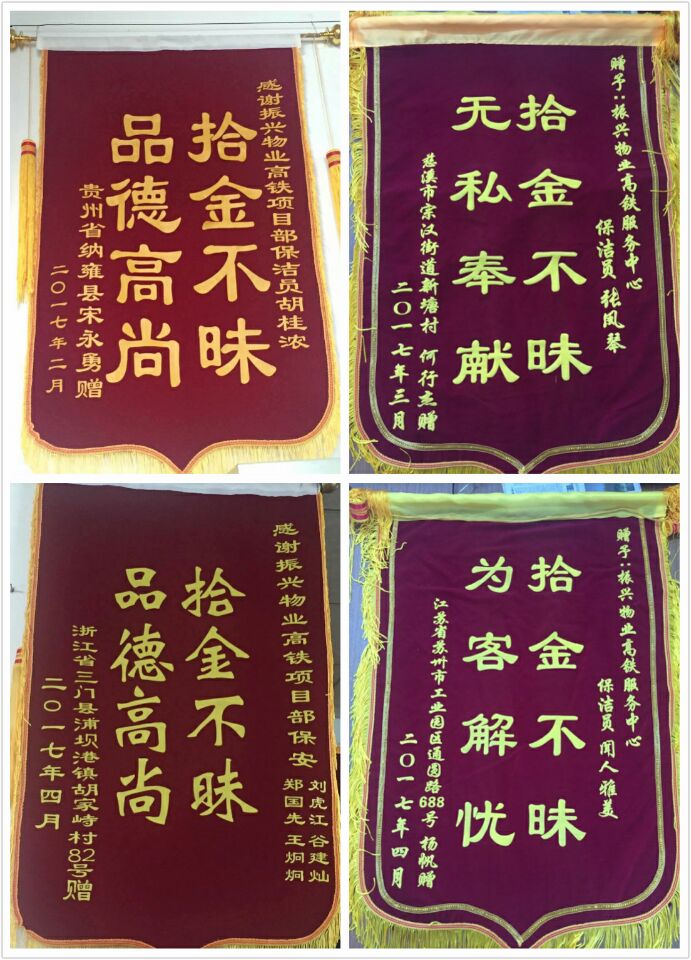 感谢振兴物业高铁项目部保洁员胡桂浓
拾金不昧
品德高尚
贵州省纳雍县宋永勇赠
二〇一七年二月
赠予：振兴物业高铁服务中心
保洁员 张凤琴
拾金不昧
无私奉献
慈溪市宗汉街道新塘村 何行杰赠
二〇一七年三月
感谢振兴物业高铁项目部保安
刘虎江 谷建灿
郑国先 王炯炯
拾金不昧
品德高尚
浙江省三门县浦坝港镇胡家峙村82号赠
二〇一七年四月
赠予：振兴物业高铁服务中心
保洁员 闻人雅美
拾金不昧
为客解忧
江苏省苏州市工业园区通园路688号 杨帆赠
二〇一七年四月